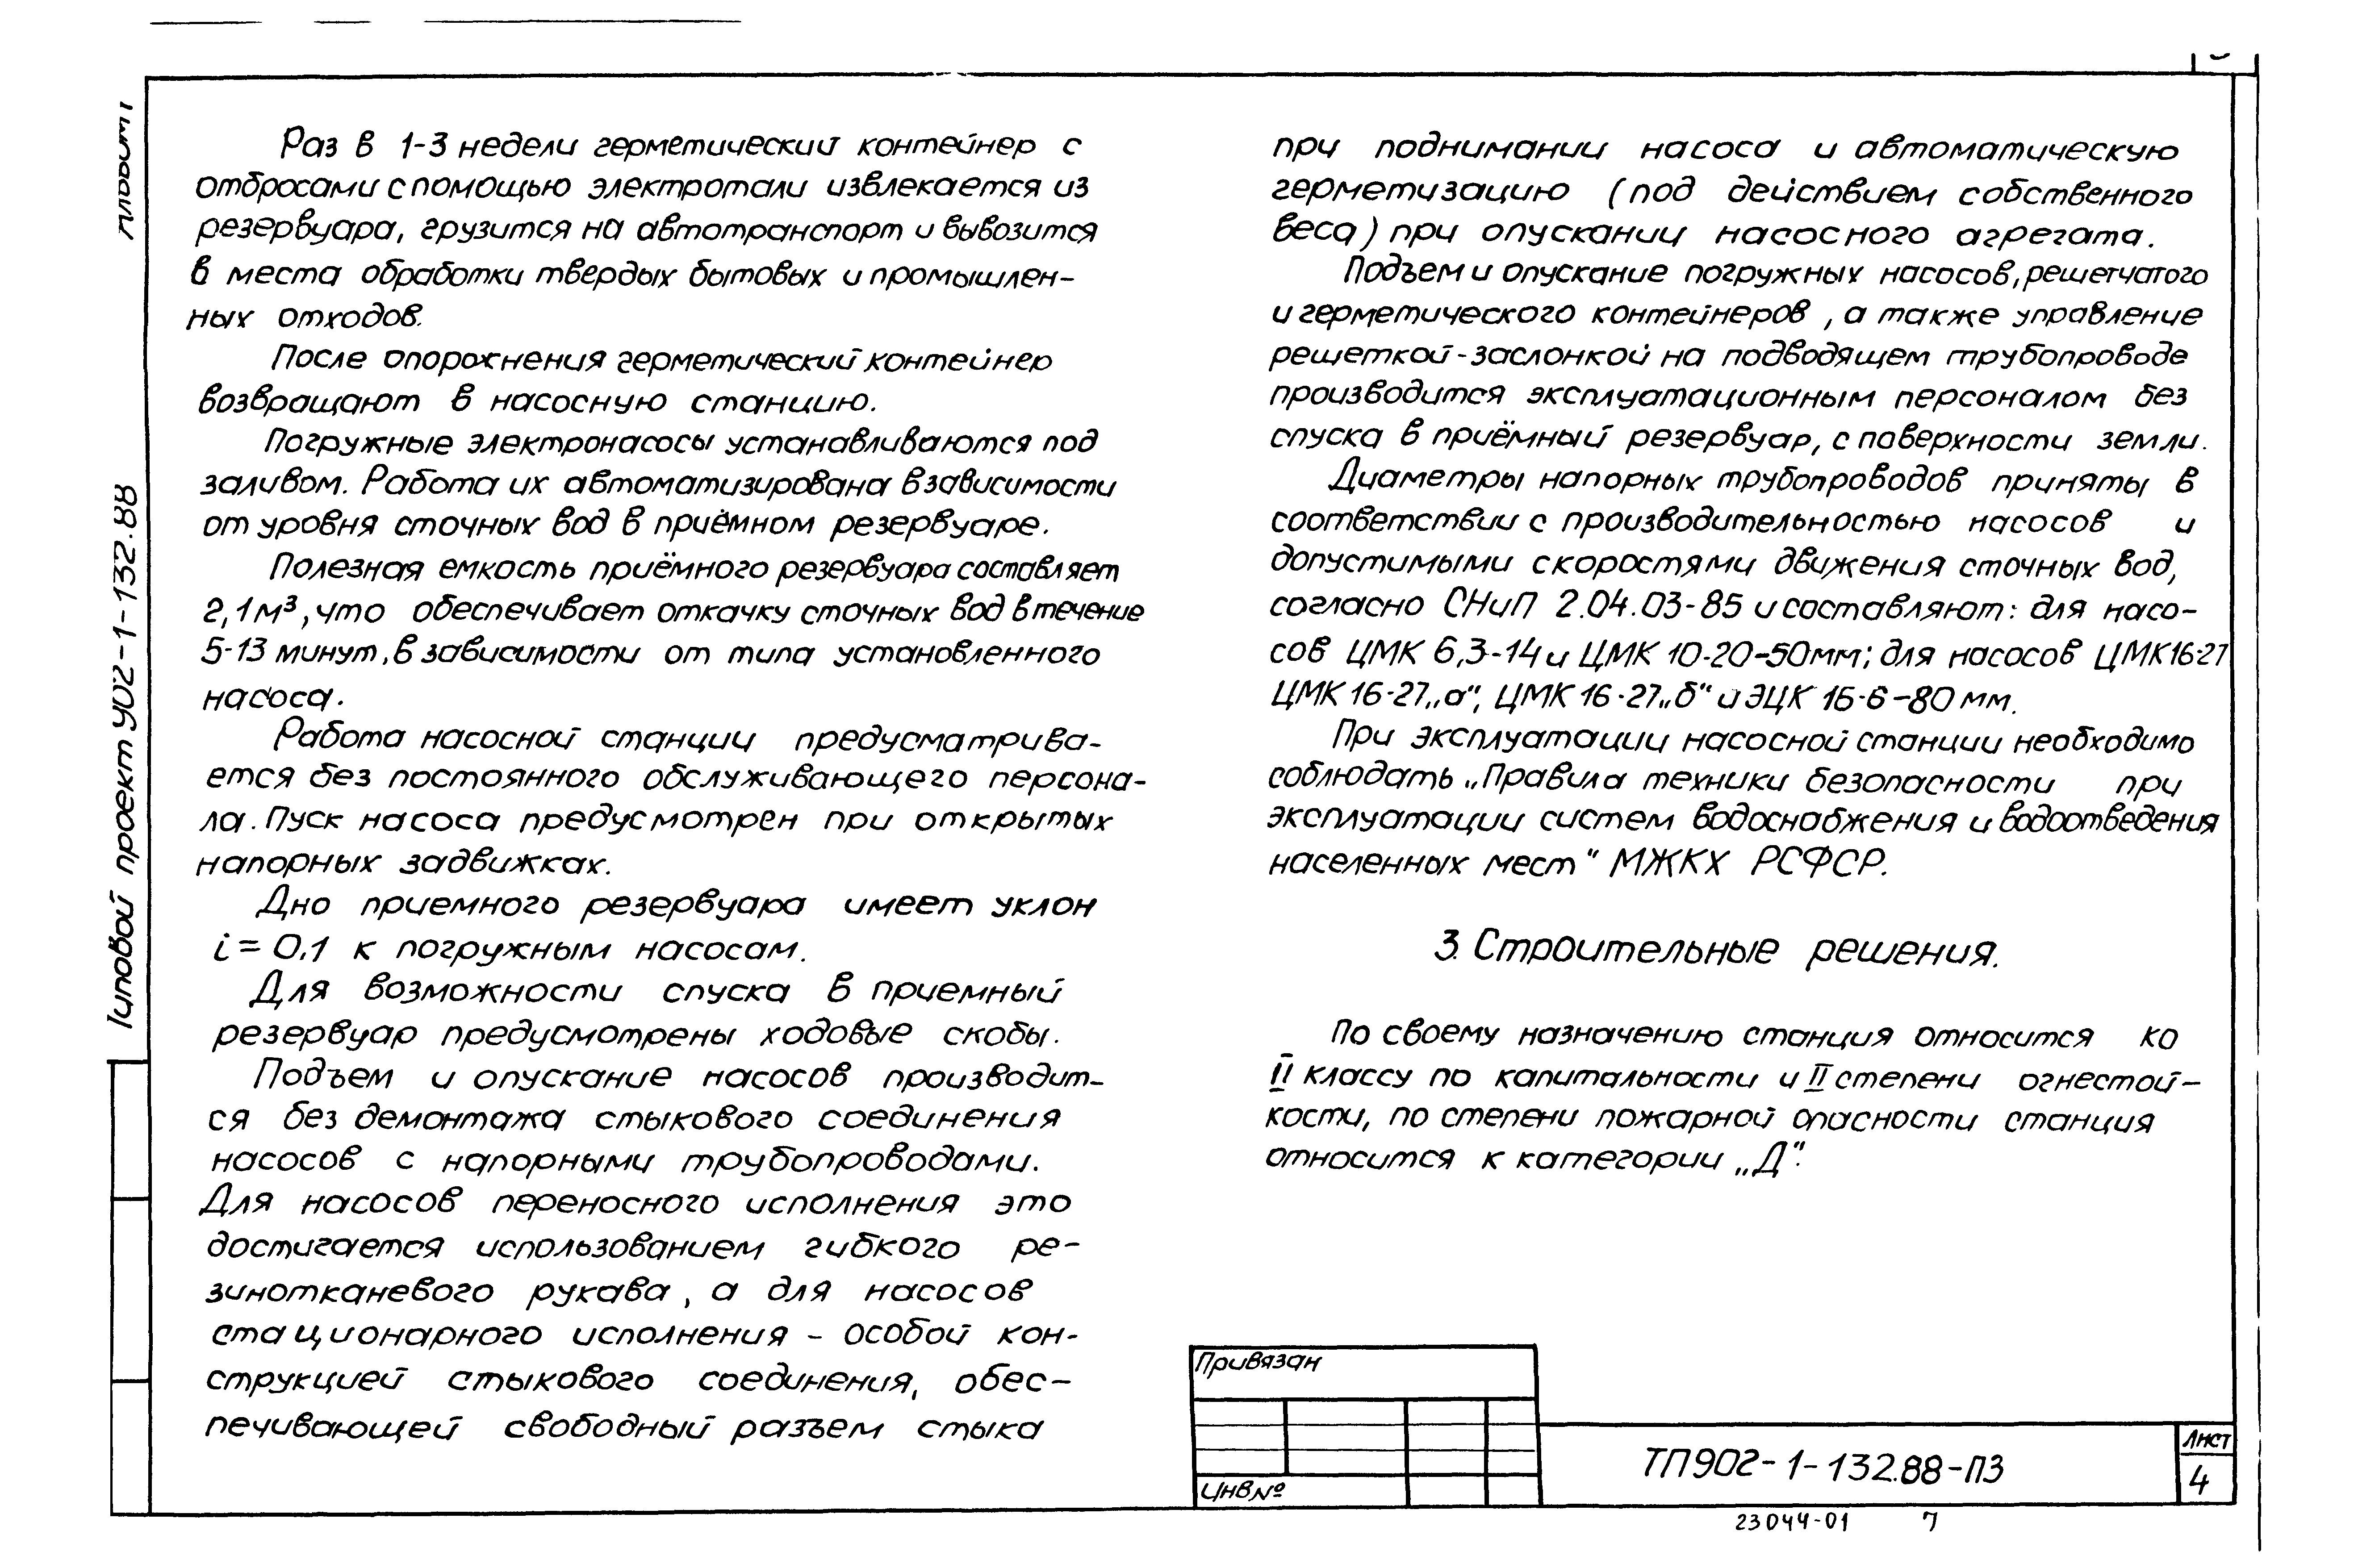 Раз в 1-3 недели герметический контейнер с
отбросами с помощью электротали извлекается из
резервуара, грузится на автотранспорт и вывозится
в места обработки твердых бытовых и промышлен-
ных отходов.
После опорожнения герметический контейнер
возвращают в насосную станцию.
Погружные электронасосы устанавливаются под
заливом. Работа их автоматизирована в зависимости
от уровня сточных вод в приёмном резервуаре.
Полезная емкость приёмного резервуара составляет
2,1м³, что обеспечивает откачку сточных вод в течение
5-13 минут, в зависимости от типа установленного
насоса.
Работа насосной станции предусматрива-
ется без постоянного обслуживающего персона-
ла. Пуск насоса предусмотрен при открытых
напорных задвижках.
Дно приемного резервуара имеет уклон
i = 0.1 к погружным насосам.
Для возможности спуска в приемный
резервуар предусмотрены ходовые скобы.
Подъем и опускание насосов производит-
ся без демонтажа стыкового соединения
насосов с напорными трубопроводами.
Для насосов переносного исполнения это
достигается использованием гибкого ре-
зинотканевого рукава, а для насосов
стационарного исполнения - особой кон-
струкцией стыкового соединения, обес-
печивающей свободный разъем стыка
при поднимании насоса и автоматическую
герметизацию (под действием собственного
веса) при опускании насосного агрегата.
Подъем и опускание погружных насосов, решетчатого
и герметического контейнеров, а также управление
решеткой-заслонкой на подводящем трубопроводе
производится эксплуатационным персоналом без
спуска в приёмный резервуар, с поверхности земли.
Диаметры напорных трубопроводов приняты в
соответствии с производительностью насосов и
допустимыми скоростями движения сточных вод,
согласно СНиП 2.04.03-85 и составляют: для насо-
сов ЦМК 6,3-14 и ЦМК 10-20-50мм; для насосов ЦМК16-27
ЦМК 16-27„а", ЦМК 16-27„б" и ЭЦК 16-6-80 мм.
При эксплуатации насосной станции необходимо
соблюдать „Правила техники безопасности при
эксплуатации систем водоснабжения и водоотведения
населенных мест" МЖКХ РСФСР.
3. Строительные решения.
По своему назначению станция относится ко
II классу по капитальности и II степени огнестой-
кости, по степени пожарной опасности станция
относится к категории „Д".
Привязан
Инв.№
ТП902-1-132.88-ПЗ
Лист
4
23044-01 7
Типовой проект 902-1-132.88
Альбом I